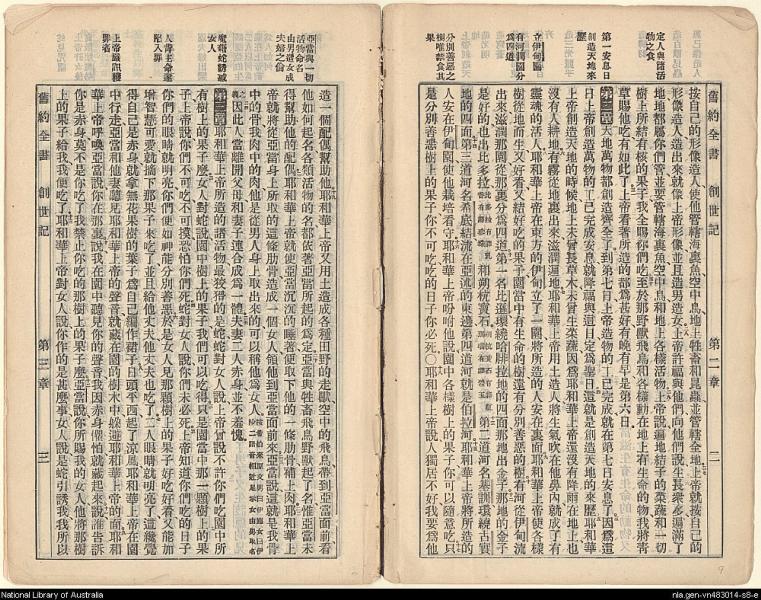 定人與諸活
物之食
第一安息日
創造天地來
歷
立伊甸園
有河環園分
爲四道
分別善惡之
樹唯禁食其
果
按自己的形像造人使他管轄海裏魚空中鳥地上牲畜和昆蟲並管轄全地上帝就按自己的
形像造人造出來就像上帝形像並且造男造女上帝許福與他們向他們說生長衆多遍滿了
地地都屬你們管並要管轄海裏魚空中鳥和地上各樣活物上帝說遍地結子的菜蔬和一切
樹上所結有核的果子我全賜你們吃至於那野獸飛鳥和各樣動在地上有生命的物我將青
草賜他吃有如此了上帝看著所造的都爲甚好有晚有早是第六日
第二章天地萬物都創造齊全了到第七日上帝造物的工已完成就在第七日安息了因爲這
日上帝創造萬物的工已完成安息就降福與這日定爲聖日這就是創造天地的來歷耶和華
上帝創造天地的時候地上未曾長草木未曾生菜蔬因爲耶和華上帝還沒有降雨在地上也
沒有人耕地有霧從地裏出來滋潤遍地耶和華上帝用土造人將生氣吹在他鼻內就成了有
靈魂的活人耶和華上帝在東方的伊甸立了一園將所造的人安在裏面耶和華上帝使各樣
樹從地而生又好看又結好吃的果子園當中有生命的樹還有分別善惡的樹有河從伊甸流
出來滋潤那園從那裏分爲四道第一名比遜環繞哈腓拉地的四面那地出金子那地的金子
是好的也出比多拉和朔杭寶石第二道河名基訓環繞古實
地的四面第三道河名希底結流在亞述的東邊第四道河就是伯拉河耶和華上帝將所造的
人安在伊甸園使他栽培看守耶和華上帝吩咐他說園中各樣樹上的果子你可以隨意吃只
是分別善惡樹上的果子你不可吃吃的日子你必死○耶和華上帝說人獨居不好我要爲他
舊約全書 創世記 第二章 二
亞當與一切
活物命名
由男造女成
夫婦之倫
魔藉蛇誘惑
女人
人背上帝命
陷入罪
上帝嚴訊獲
罪者
造一個配偶幫助他耶和華上帝又用土造成各種田野的走獸空中的飛鳥帶到亞當面前看
他如何起名各類活物的名都依著亞當所起的爲定亞當與牲畜飛鳥野獸起了名惟亞當未
得幫助他的配偶耶和華上帝就使亞當沉沉的睡著便取下他的一條肋骨補上肉耶和華上
帝就將從亞當身上所取的這條肋骨造成一個女人領他到亞當面前來亞當說這就是我骨
中的骨我肉中的肉他是從男人身上取出來的可以稱他爲女人
因此人當離開父母和妻子連合成爲一體夫妻二人赤身並不羞愧
第三章耶和華上帝所造的諸活物最狡猾的是蛇蛇對女人說上帝曾說不許你們吃園中所
有樹上的果子麼女人對蛇說園中樹上的果子我們可以吃得只是園當中那一顆樹上的果
子上帝說你們不可吃不可摸恐怕你們死蛇對女人說你們未必死上帝知道你們吃的日子
你們的眼睛就明亮你們便如神能分別善惡於是女人見那顆樹上的果子好吃好看又能加
增智慧可愛就摘下那果子來吃了並且給他丈夫他丈夫也吃了二人眼睛就明亮了這纔覺
得自己是赤身就拿無花果樹的葉子爲自己編作裙子日頭平西起了涼風耶和華上帝在園
中行走亞當和他妻聽見耶和華上帝的聲音就藏在園的樹木中躲避耶和華上帝的面耶和
華上帝呼喚亞當說你在那裏說我在園中聽見你的聲音我因赤身懼怕就藏起來說誰告訴
你是赤身莫不是你吃了我禁止你吃的那樹上的果子麼亞當說你所賜我的女人他將那樹
上的果子給我我便吃了耶和華上帝對女人說你作的是甚麼事女人說是蛇引誘我我所以
舊約全書 創世記 第三章 三
National Library of Australia
nla.gen-vn483014-s8-e